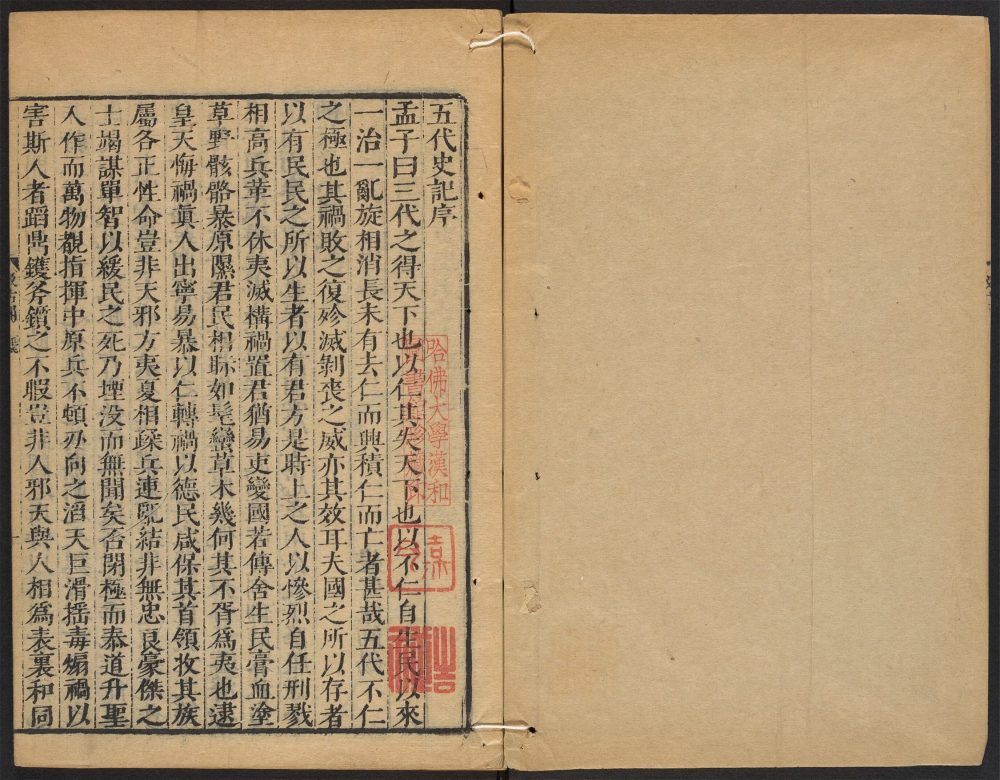 五代史記序
孟子曰三代之得天下也以仁其失天下也以不仁自生民以來
一治一亂旋相消長未有去仁而興積仁而亡者甚哉五代不仁
之極也其禍敗之復殄滅剝喪之威亦其效耳夫國之所以存者
以有民民之所以生者以有君方是時上之人以慘烈自任刑戮
相高兵革不休夷滅構禍置君猶易吏變國若傳舍生民膏血塗
草野骸骼暴原隰君民相眎如髦蠻草木幾何其不胥爲夷也逮
皇天悔禍眞人出寧易暴以仁轉禍以德民咸保其首領收其族
屬各正性命豈非天邪方夷夏相蹂兵連亂結非無忠良豪傑之
士竭謀單智以緩民之死乃堙没而無聞矣否閉極而泰道升聖
人作而萬物覩指揮中原兵不頓刃向之滔天巨滑揺毒煽禍以
害斯人者蹈鼎鑊斧鑕之不暇豈非人邪天與人相爲表裏和同
哈佛大學漢和
圖書館珍藏印